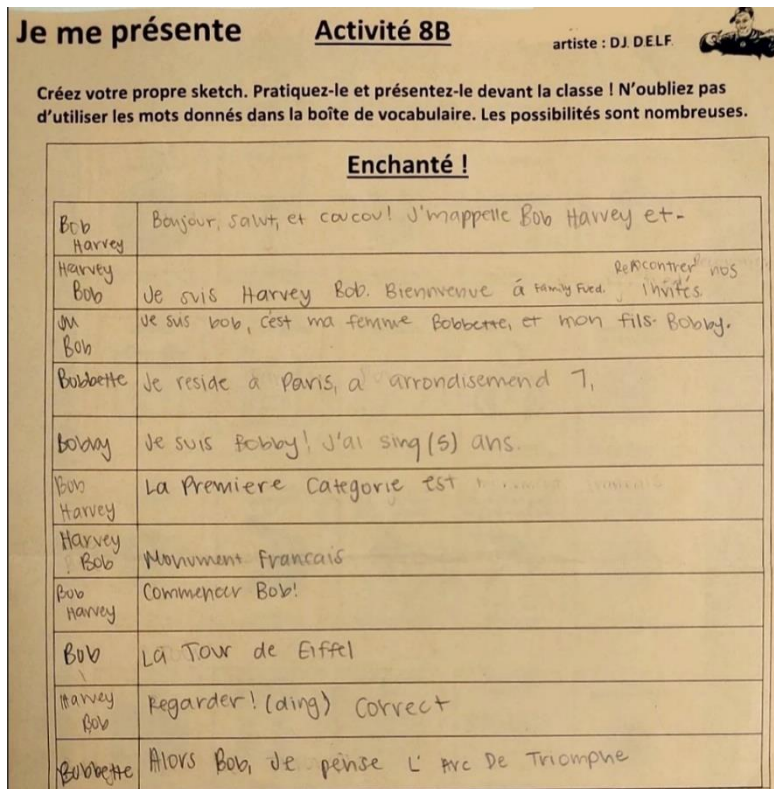 Je me présente Activité 8B artiste : DJ. D.E.L.F.
Créez votre propre sketch. Pratiquez-le et présentez-le devant la classe ! N’oubliez pas
d’utiliser les mots donnés dans la boîte de vocabulaire. Les possibilités sont nombreuses.
Enchanté !
Bob Bonjour, salut, et coucou! J'mappelle Bob Harvey et-
Harvey
Harvey Rencontrer nos
Bob Je suis Harvey Bob. Biennvenue á Family Fued. invités
Bob Je suis bob, c'est ma femme Bobbette, et mon fils. Bobby.
Bobbette Je reside a Paris, a arrondisemend 7,
Bobby Je suis Bobby! J'ai sinq (5) ans.
Bob La Premiere Categorie est
Harvey
Harvey
Bob Monument Francais
Bob Commencer Bob!
Harvey
Bob La Tour de Eiffel
Harvey Regarder! (ding) Correct
Bob
Bobbette Alors Bob, Je pense L' Arc De Triomphe